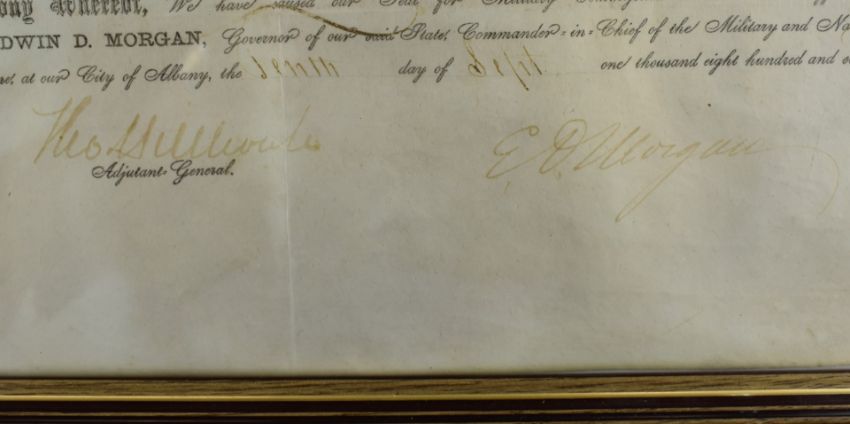 Whereof, We have caused our Seal for Military
DWIN D. MORGAN, Governor of our said State, Commander-in-Chief of the Military and Na
at our City of Albany, the Tenth day of Sept one thousand eight hundred and
Tho Hillhouse
E. D. Morgan
Adjutant General.